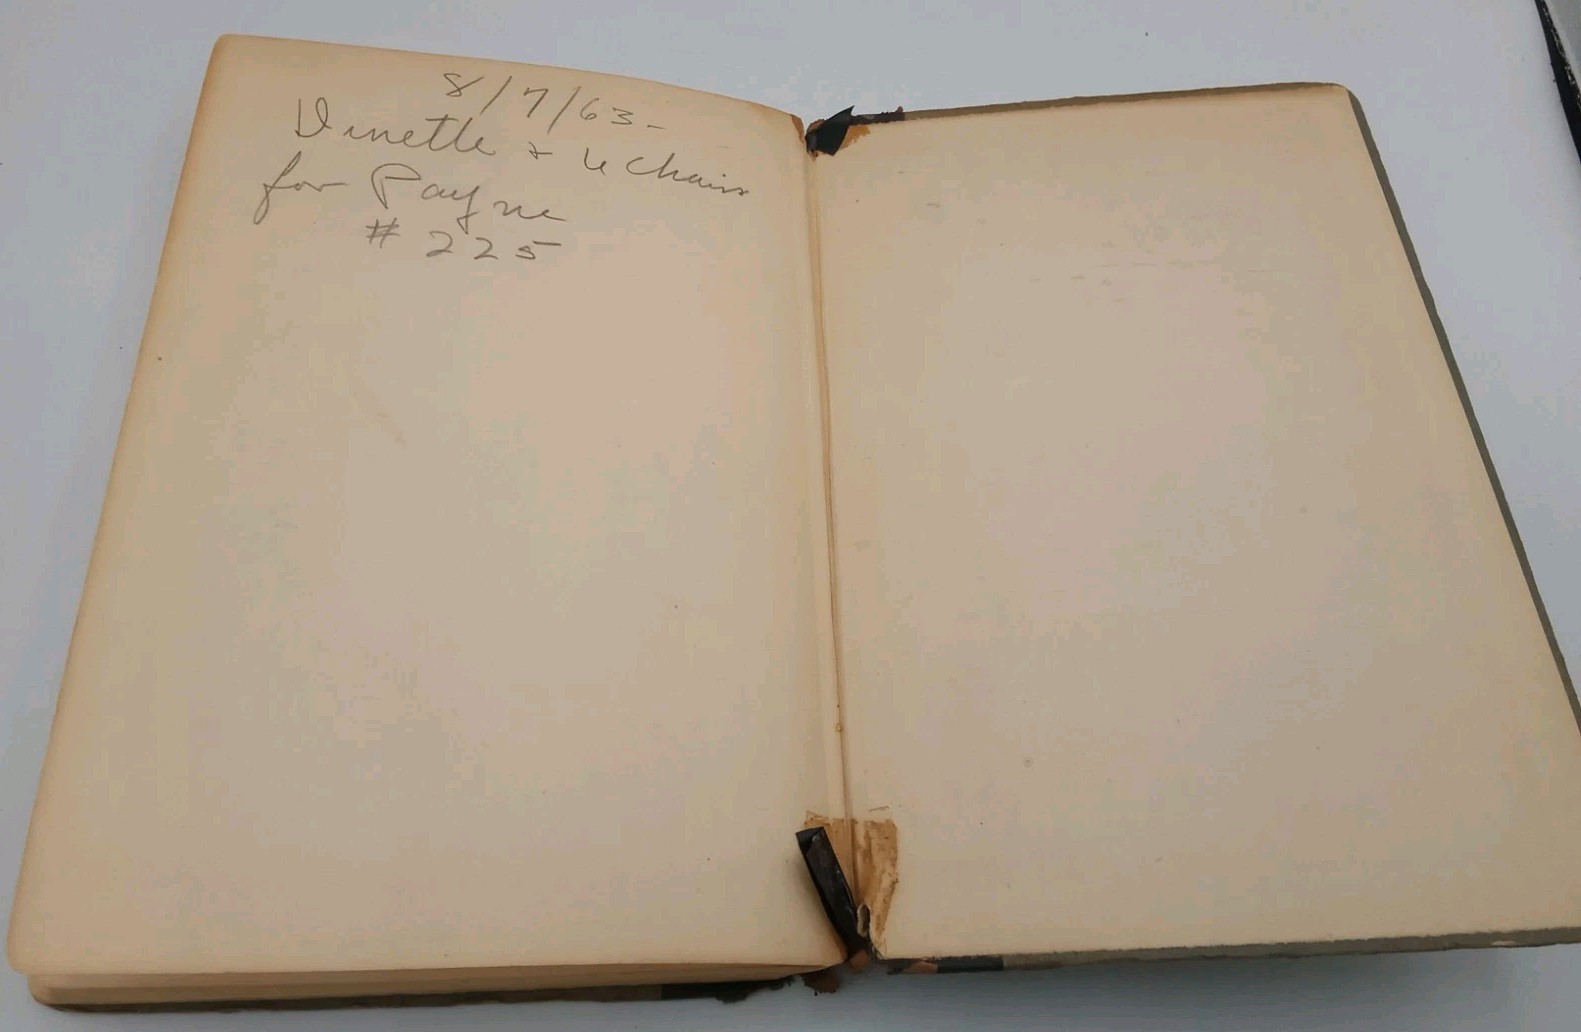 8/7/63-
Dinette + 4 Chairs
for Payne
# 225